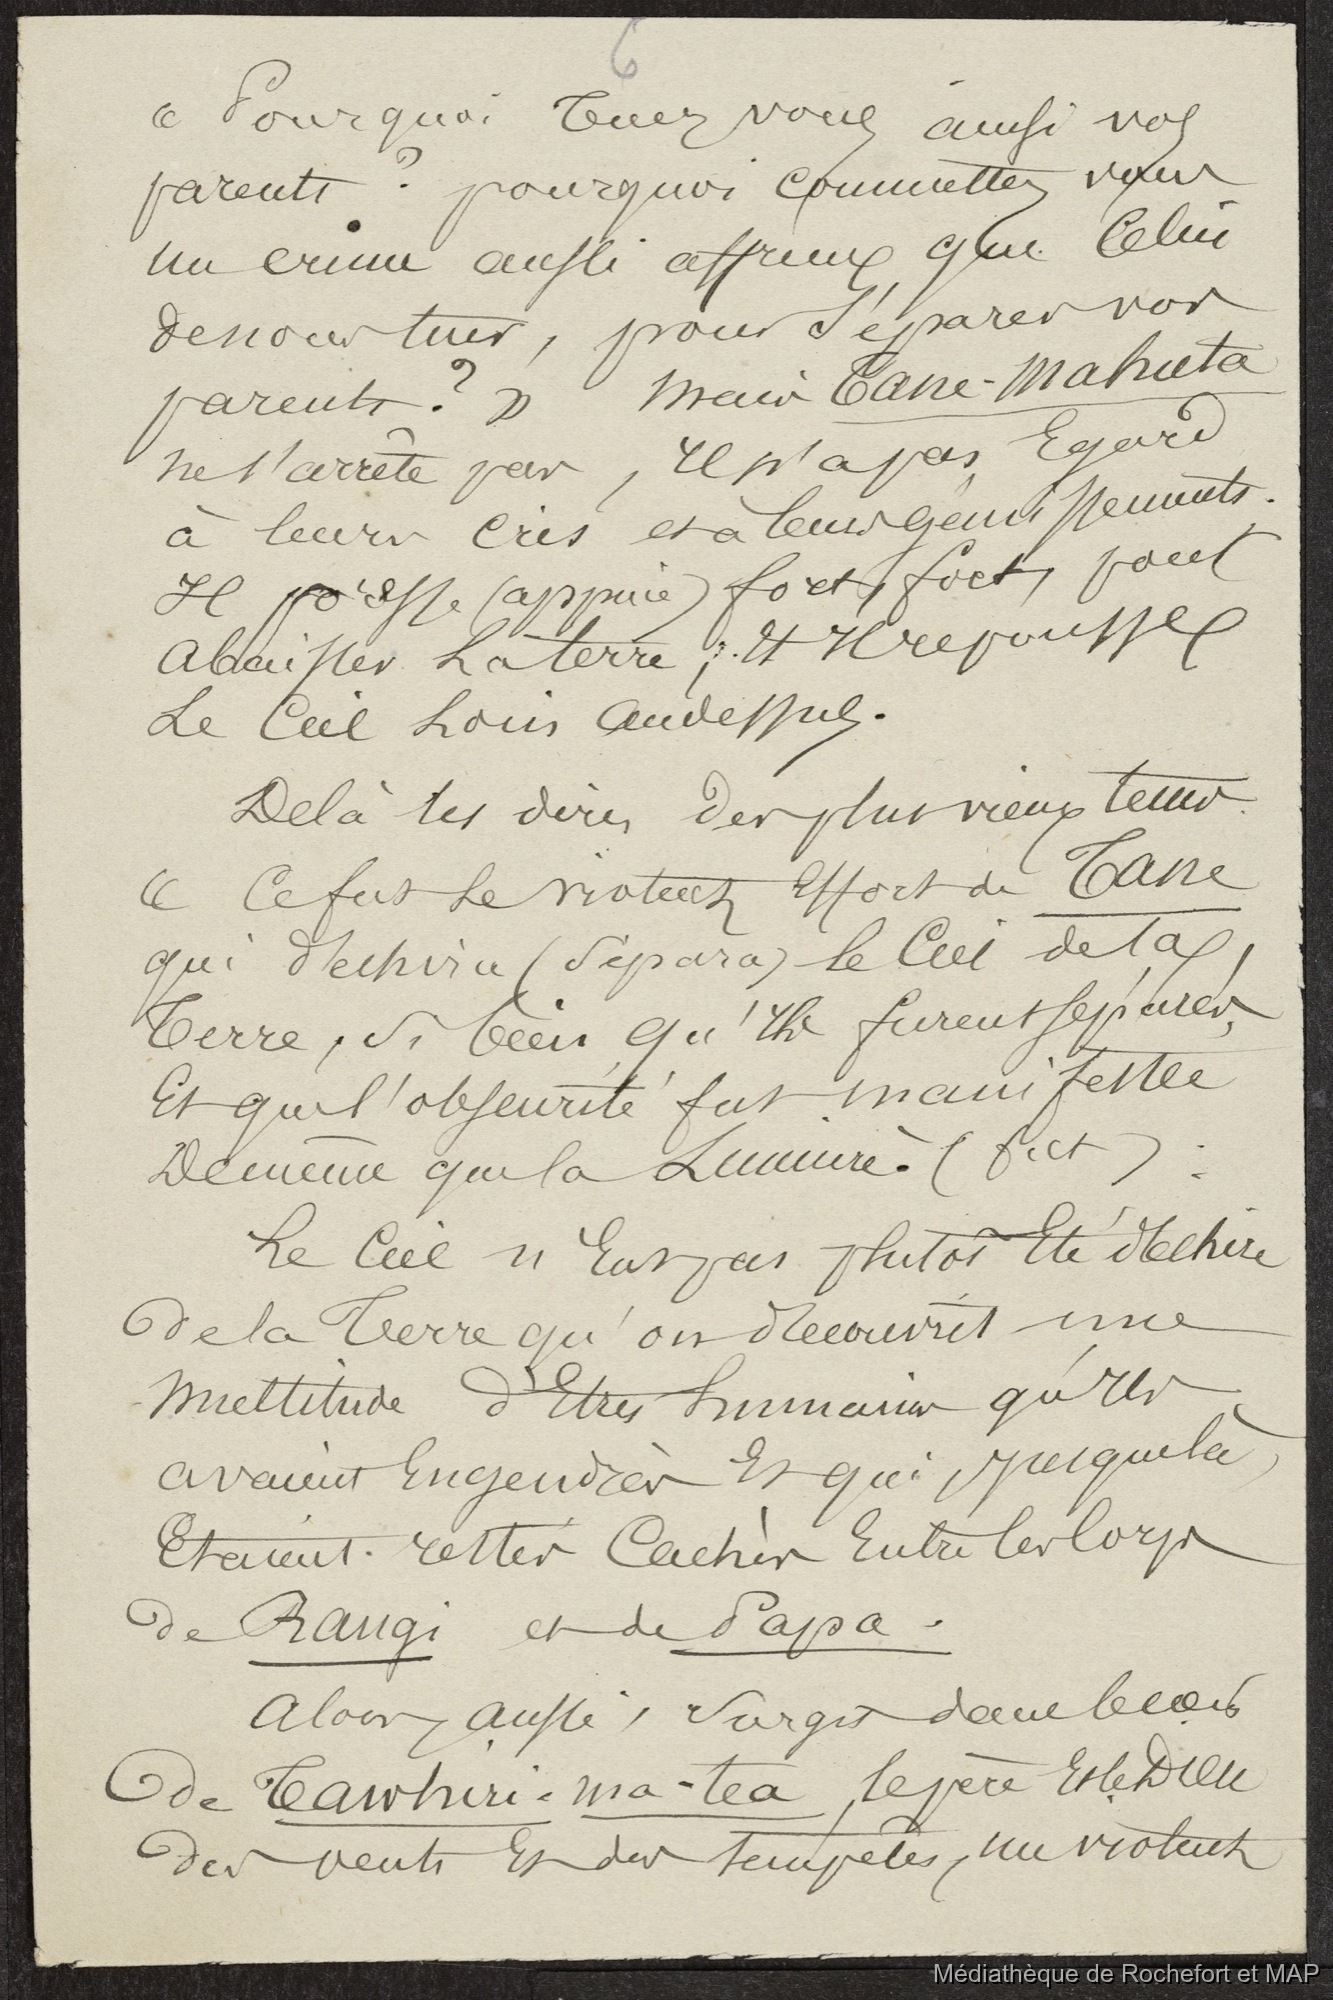 6
« Pourquoi tuez vous ainsi vos
parents ? pourquoi commettez vous
un crime aussi affreux que celui
de nous tuer, pour séparer vos
parents ? » Mais Tane-Mahuta
ne s'arrête pas, Il n'a pas Egard
à leurs cris et à leurs gémissements.
Il presse (appuie) fort, fort, pour
abaisser la terre ; Et Il repousse
Le Ciel Loin au dessus.
De là les dires des plus vieux tems
« Ce fut le violent Effort de Tane
qui déchira (sépara) le Ciel de la
Terre, si bien qu'Ils furent séparés,
Et que l'obscurité fut manifestée
De même que la Lumière. (fut) :
Le Ciel n'Eut pas plutôt Eté déchiré
De la Terre qu'on découvrit une
Multitude d'Etres humains qu'Ils
avaient Engendrés Et qui, jusque là,
Etaient restés Cachés Entre les Corps
de Rangi et de Papa.
Alors, aussi, surgit dans le cœur
de Tawhiri-ma-tea, le père Et le Dieu
des vents Et des tempêtes, un violent
Médiathèque de Rochefort et MAP